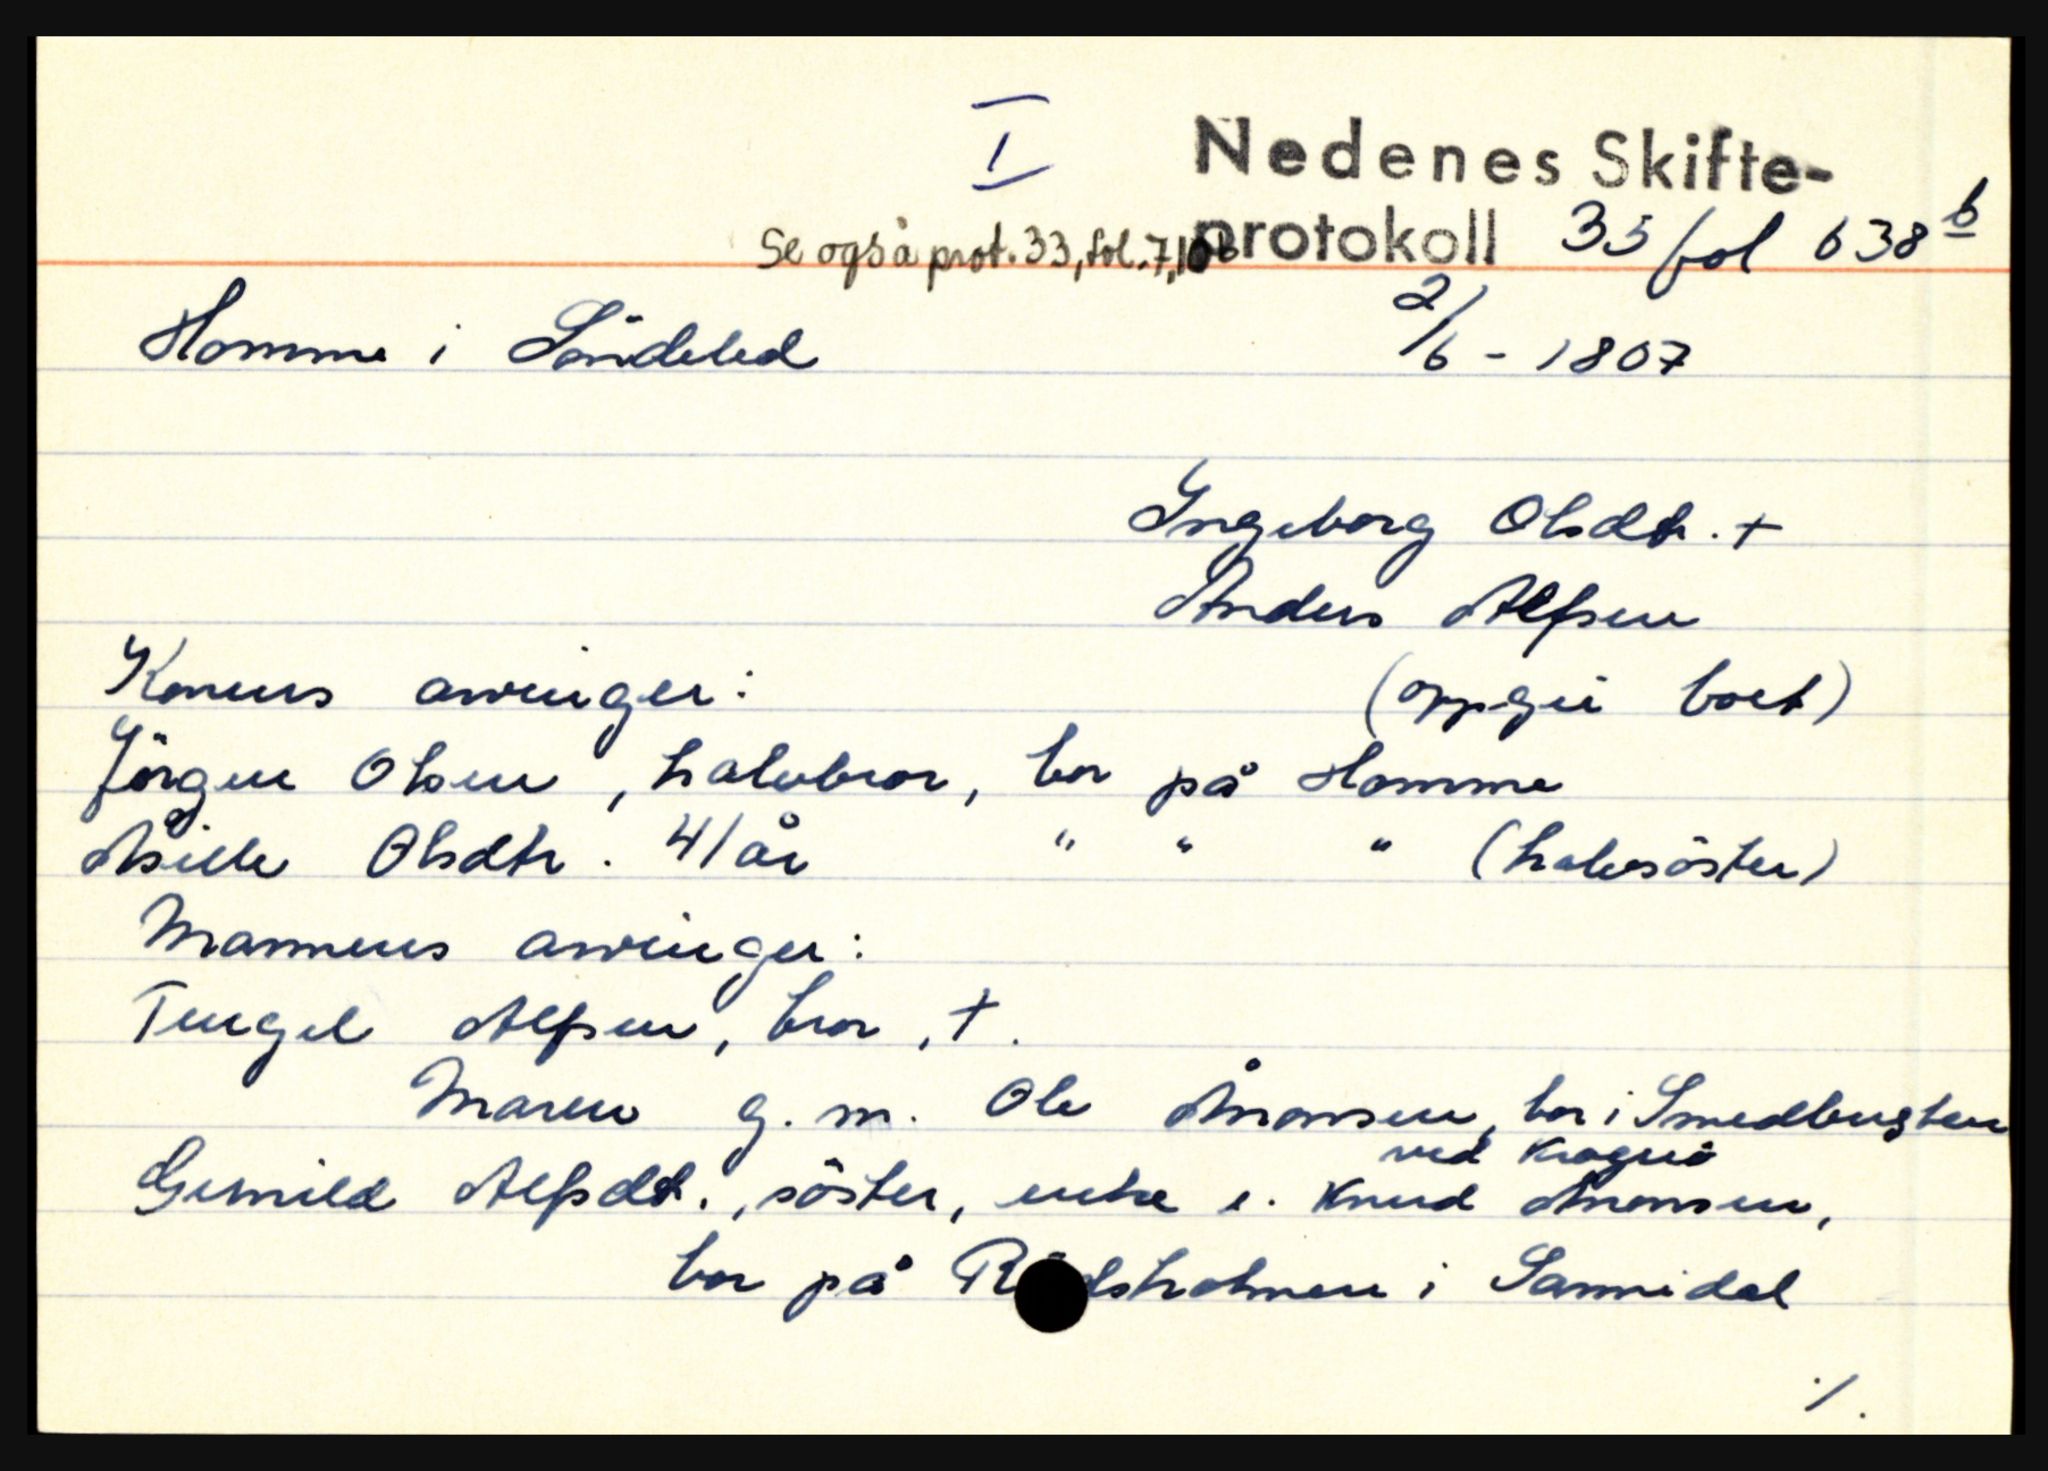 I
Nedenes Skifte-
protokoll 35 fol 638 b
Se også prot. 33, fol. 7, 10b
Homme i Söndeled 2/6 - 1807
Ingeborg Olsdtr. +
Anders Alfsen
Konens arvinger: (oppgir boet)
Jörgen Olsen, halvbror, bor på Homme
Åsille Olsdtr. 41 år " " " (halvsöster)
Mannens arvinger:
Tengel Alfsen, bror, +.
Maren g. m. Ole Åmonsen, bor i Smedbugten
ved Kragerö
Gunild Alfsdt., söster, enke e. Knud Åmonsen,
bor på i Sannidal
./.